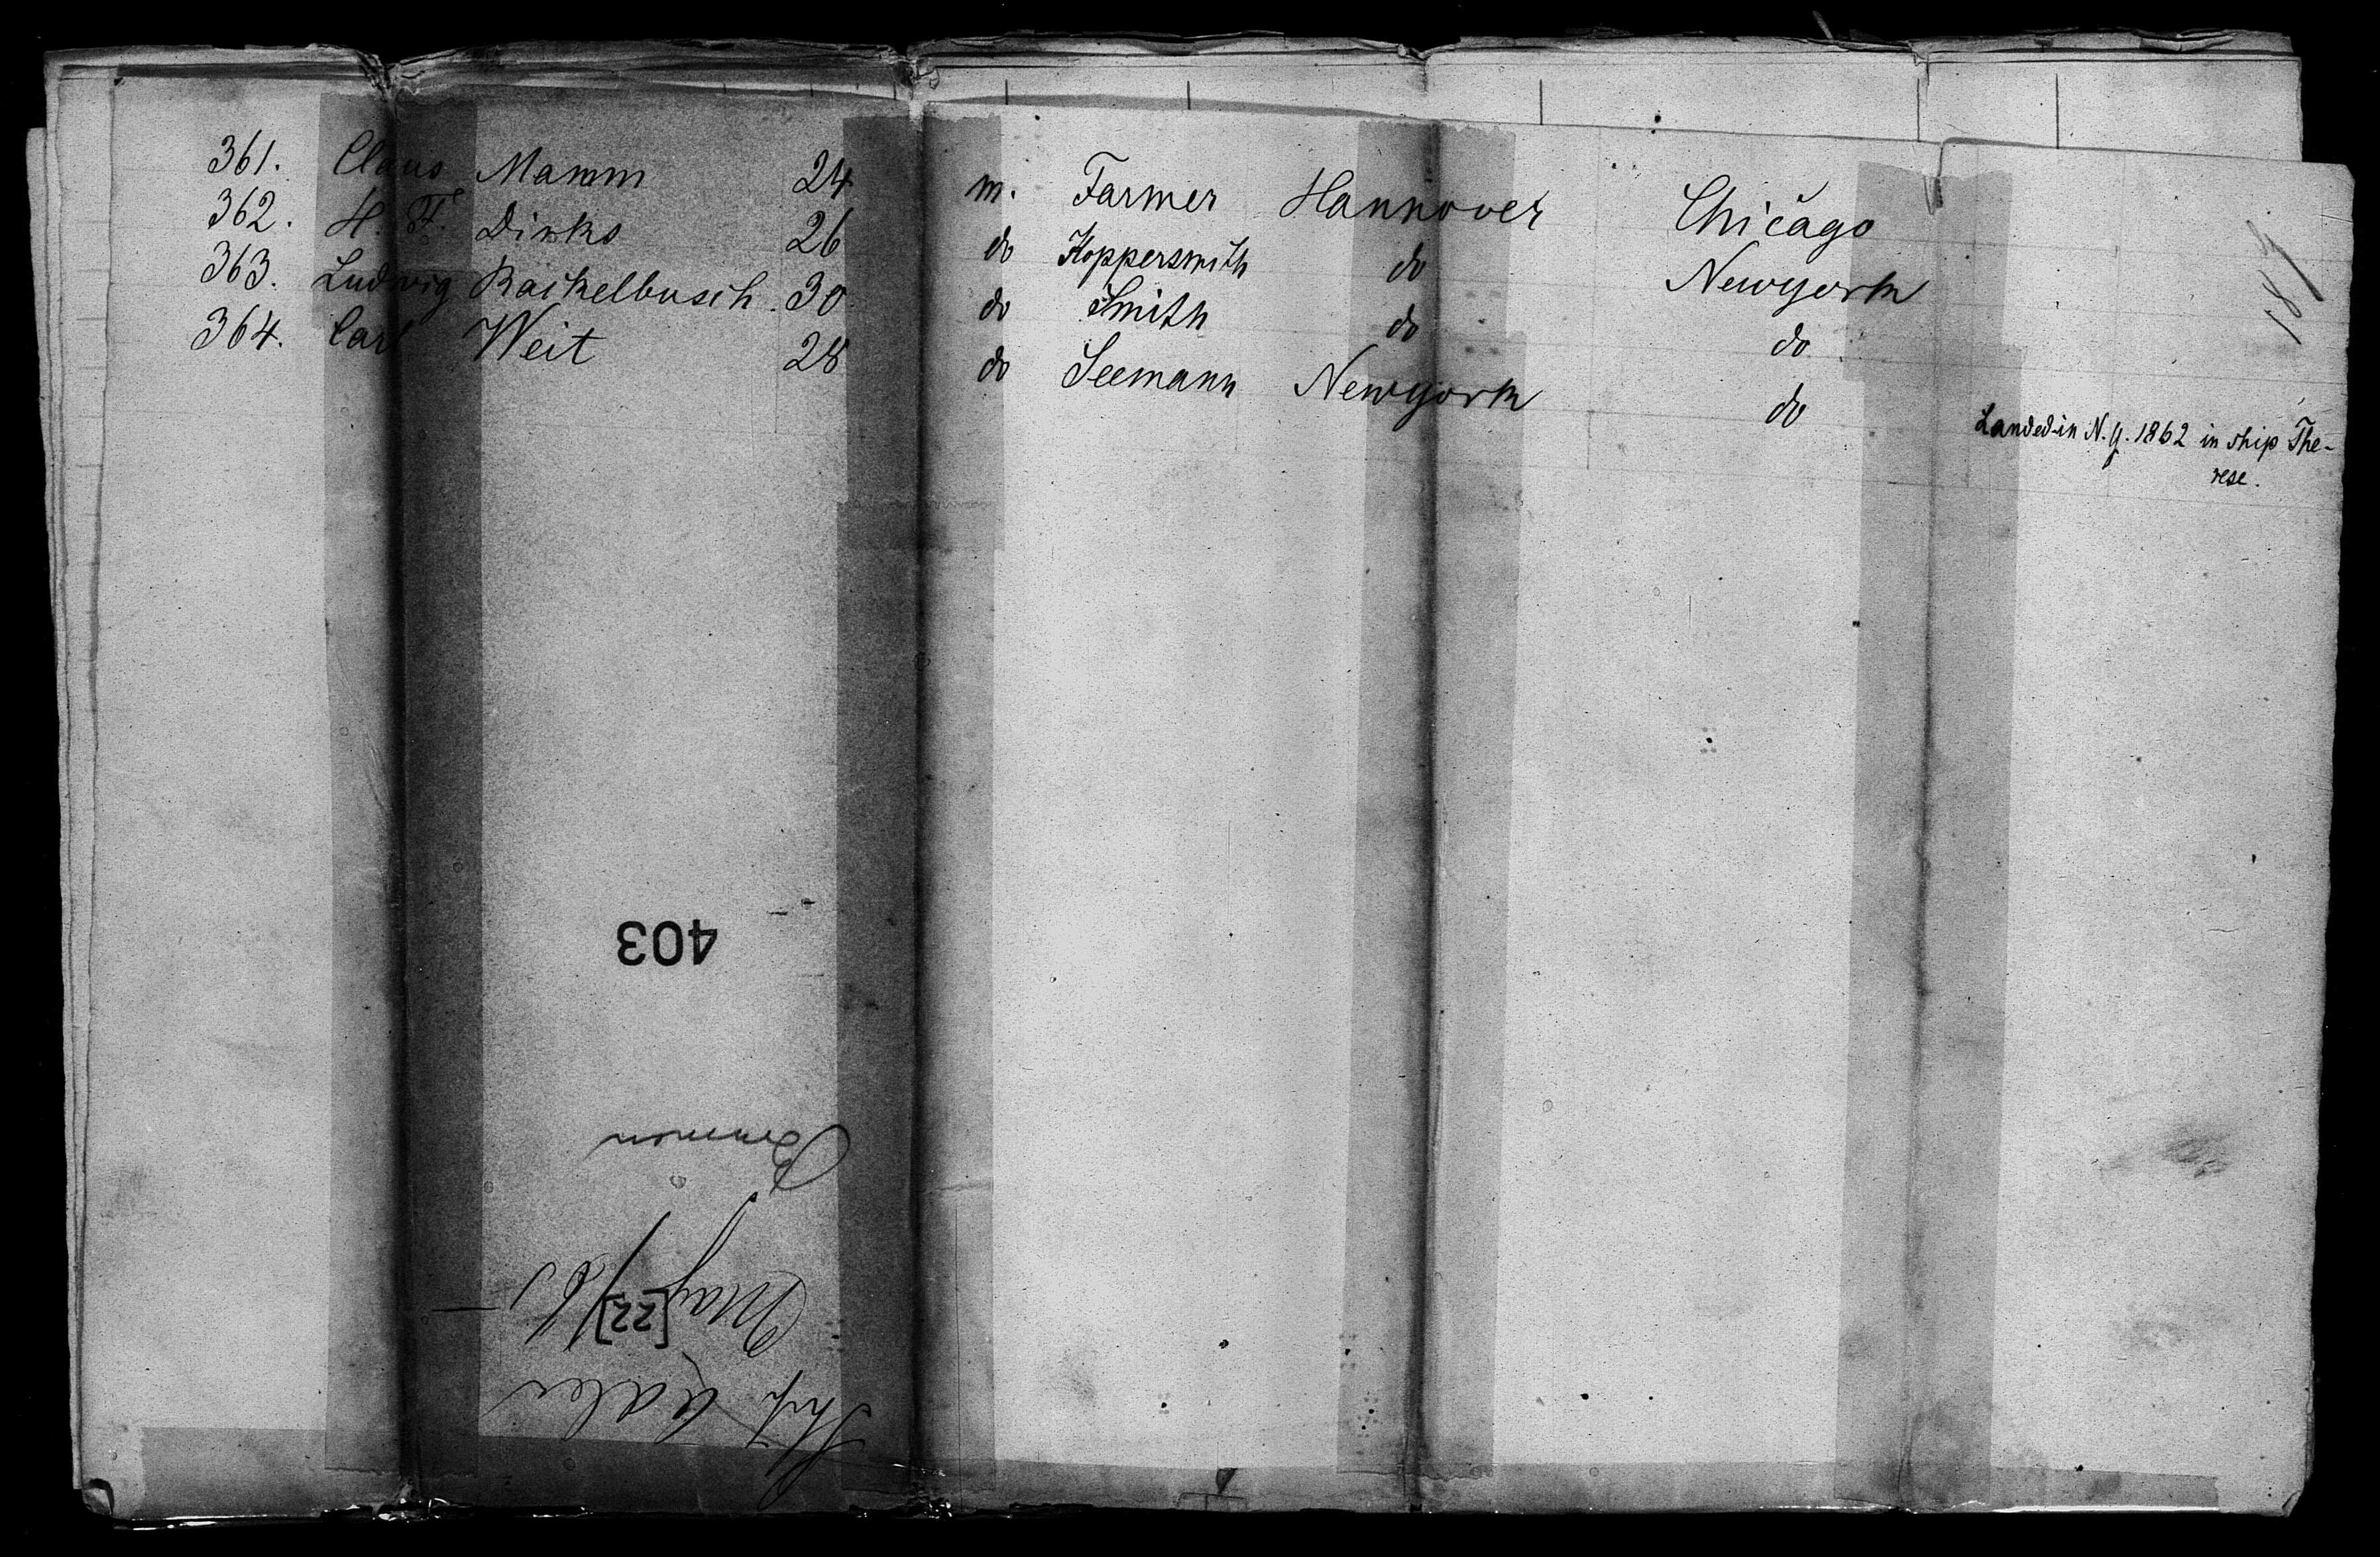 361. Claus Mamm 24 m. Farmer Hannover Chicago
362. H. Fr. Dirks 26 do Koppersmith do Newyork
363. Ludwig Raikelbusch. 30 do Smith do do
364. Carl Weit 28 do Seemann Newyork do Landed in N.Y. 1862 in ship The-
rese.
187
403
Bremen
May [22]/65
Ship Adler